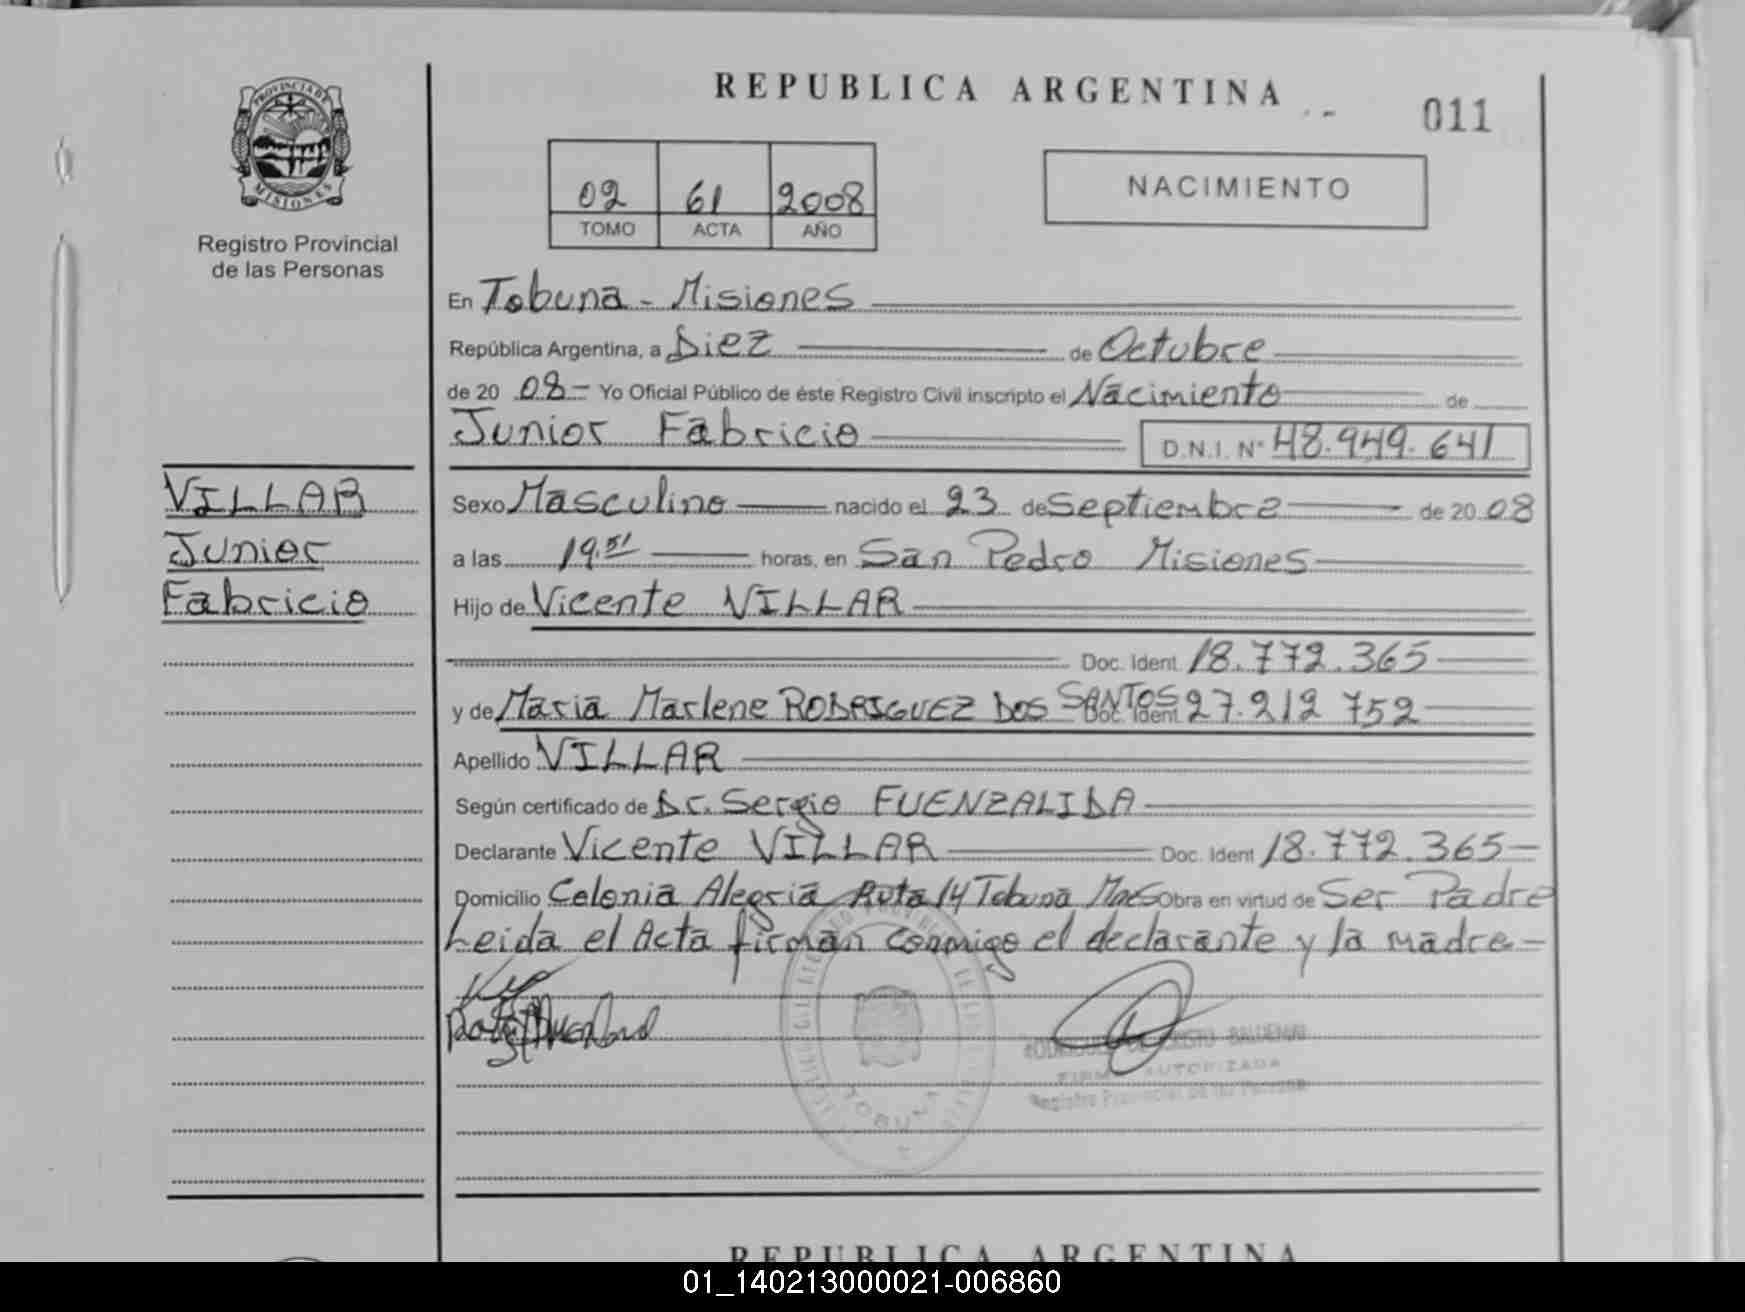 REPUBLICA ARGENTINA
011
PROVINCIA DE
MISIONES
Registro Provincial
de las Personas
02 61 2008
TOMO ACTA AÑO
NACIMIENTO
En Tobuna - Misiones
República Argentina, a Diez de Octubre
de 20 08 - Yo Oficial Público de éste Registro Civil inscripto el Nacimiento de
Junior Fabricio D.N.I. N° 48.949.641
VILLAR
Junior
Fabricio
Sexo Masculino nacido el 23 de Septiembre de 20 08
a las 19.51 horas, en San Pedro Misiones
Hijo de Vicente VILLAR
Doc. Ident. 18.772.365
y de Maria Marlene RODRIGUEZ DOS SANTOS Doc. Ident. 27.212 752
Apellido VILLAR
Según certificado de Dr. Sergio FUENZALIDA
Declarante Vicente VILLAR Doc. Ident 18.772.365-
Domicilio Colonia Alegria Ruta 14 Tobuna Mnes Obra en virtud de Ser Padre
Leida el Acta firman conmigo el declarante y la madre -
FIRMA AUTORIZADA
Registro Provincial de las Personas
TOBUNA
REPUBLICA ARGENTINA
01_140213000021-006860